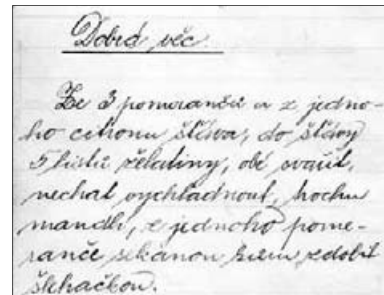 Dobrá věc.
Ze 3 pomerančů a z jedno-
ho citronu šťáva, do šťávy
5 listů želatiny, obé svařit,
nechat vychladnout, trochu
mandlí, z jednoho pome-
ranče sekanou kůru zdobit
šlehačkou.